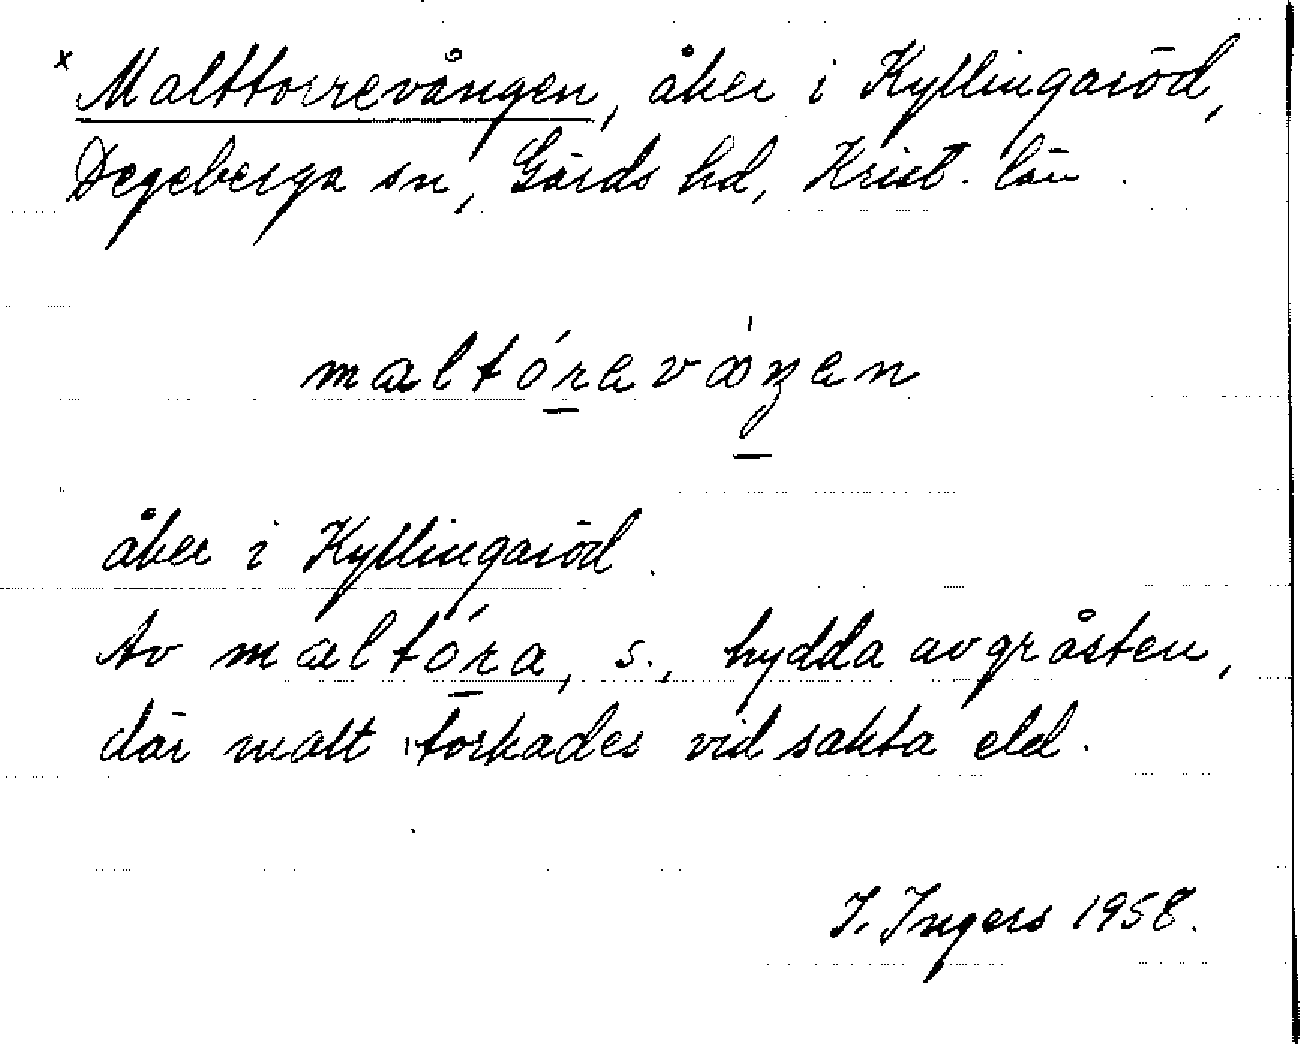 x Malttorrevången, åker i Kyllingaröd,
Degeberga sn, Gärds hd, Krist. län.
maltóravåŋen
åker i Kyllingaröd.
Av maltóra, s., hydda av gråsten,
där malt torkades vid sakta eld.
I. Ingers 1958.